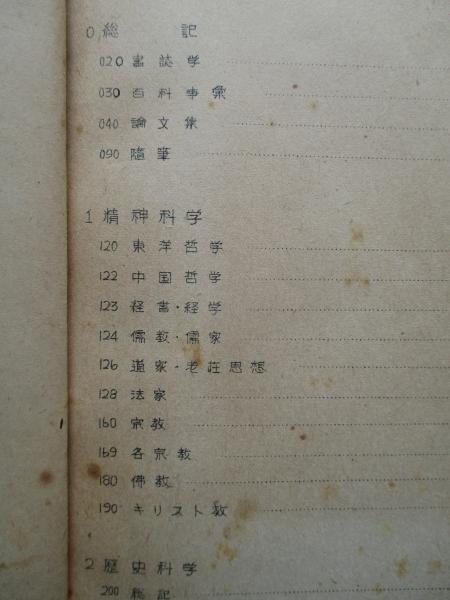 0 総記
020 書誌学
030 百科事彙
040 論文集
090 随筆
1 精神科学
120 東洋哲学
122 中国哲学
123 経書・経学
124 儒教・儒家
126 道家・老荘思想
128 法家
160 宗教
169 各宗教
180 佛教
190 キリスト教
2 歴史科学
200 総記